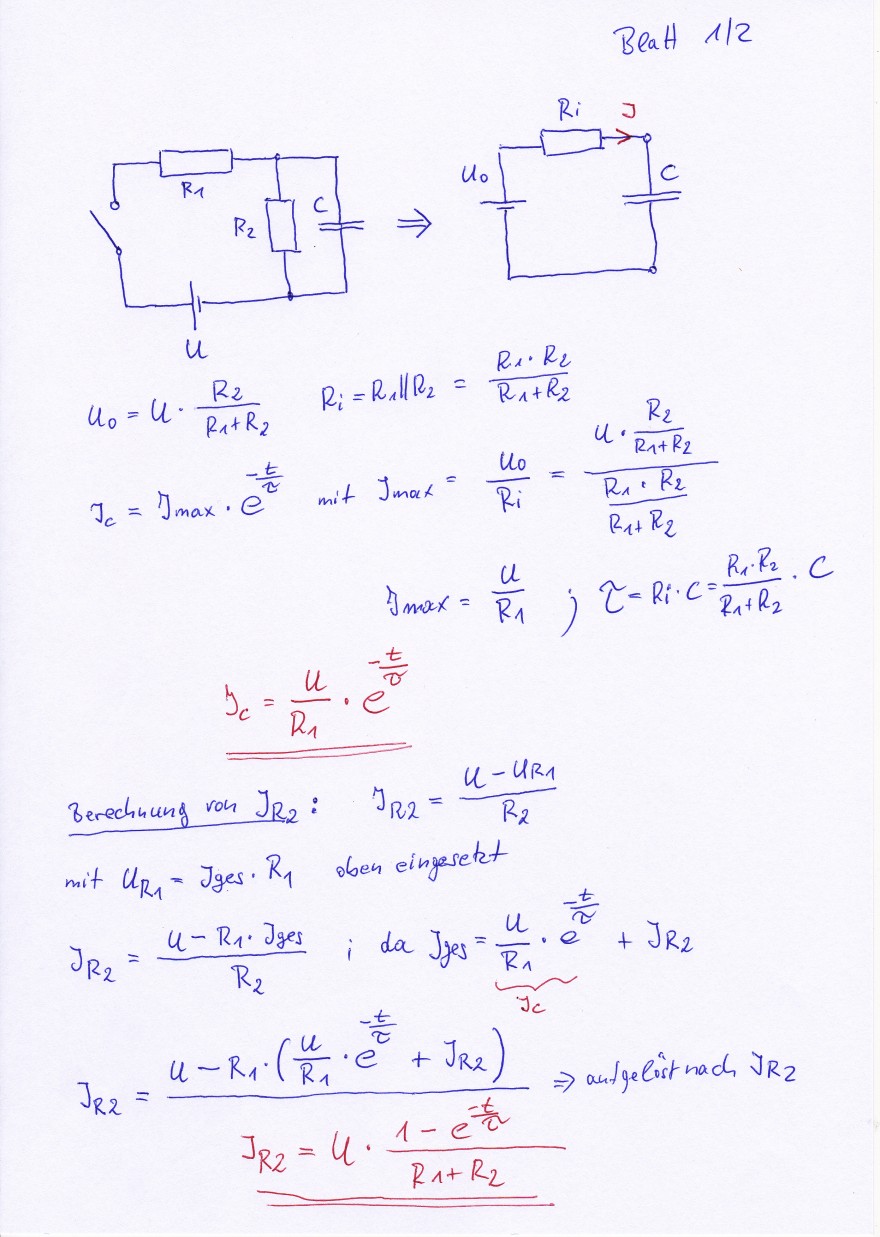 Blatt 1/2
Ri I
R1 R2 C ⇒ U0 C
U
U0 = U · R2/(R1+R2) Ri = R1||R2 = (R1 · R2)/(R1+R2)
Ic = Imax · e^(-t/τ) mit Imax = U0/Ri = (U · R2/(R1+R2))/((R1 · R2)/(R1+R2))
Imax = U/R1 ; τ = Ri · C = (R1·R2)/(R1+R2) · C
Ic = U/R1 · e^(-t/τ)
Berechnung von IR2 : IR2 = (U - UR1)/R2
mit UR1 = Iges · R1 oben eingesetzt
IR2 = (U - R1 · Iges)/R2 ; da Iges = U/R1 · e^(-t/τ) + IR2
Ic
IR2 = U - R1·(U/R1 · e^(-t/τ) + IR2) ⇒ aufgelöst nach IR2
IR2 = U · (1 - e^(-t/τ))/(R1+R2)